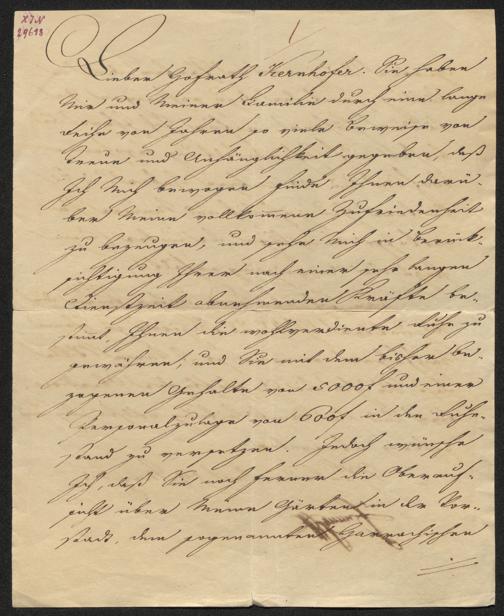 I.N
29618
Lieber Hofrath Kernhofer. Sie haben
Mir und Meiner Familie durch eine lange
Reihe von Jahren so viele Beweise von
Treue und Anhänglichkeit gegeben, daß
Ich Mich bewogen finde, Ihnen darü-
ber Meine vollkommene Zufriedenheit
zu bezeugen, und sehe Mich in Berück-
sichtigung Ihrer nach einer sehr langen
Dienstzeit abnehmenden Kräfte be-
stimmt, Ihnen die wohlverdiente Ruhe zu
gewähren, und Sie mit dem bisher be-
zogenen Gehalte von 5000f und einer
Personalzulage von 600f in den Ruhe-
stand zu versetzen. Jedoch wünsche
Ich, daß Sie noch ferner die Oberauf-
sicht über Meine Gärten in der Vor-
stadt, dem sogenannten Harrachischen